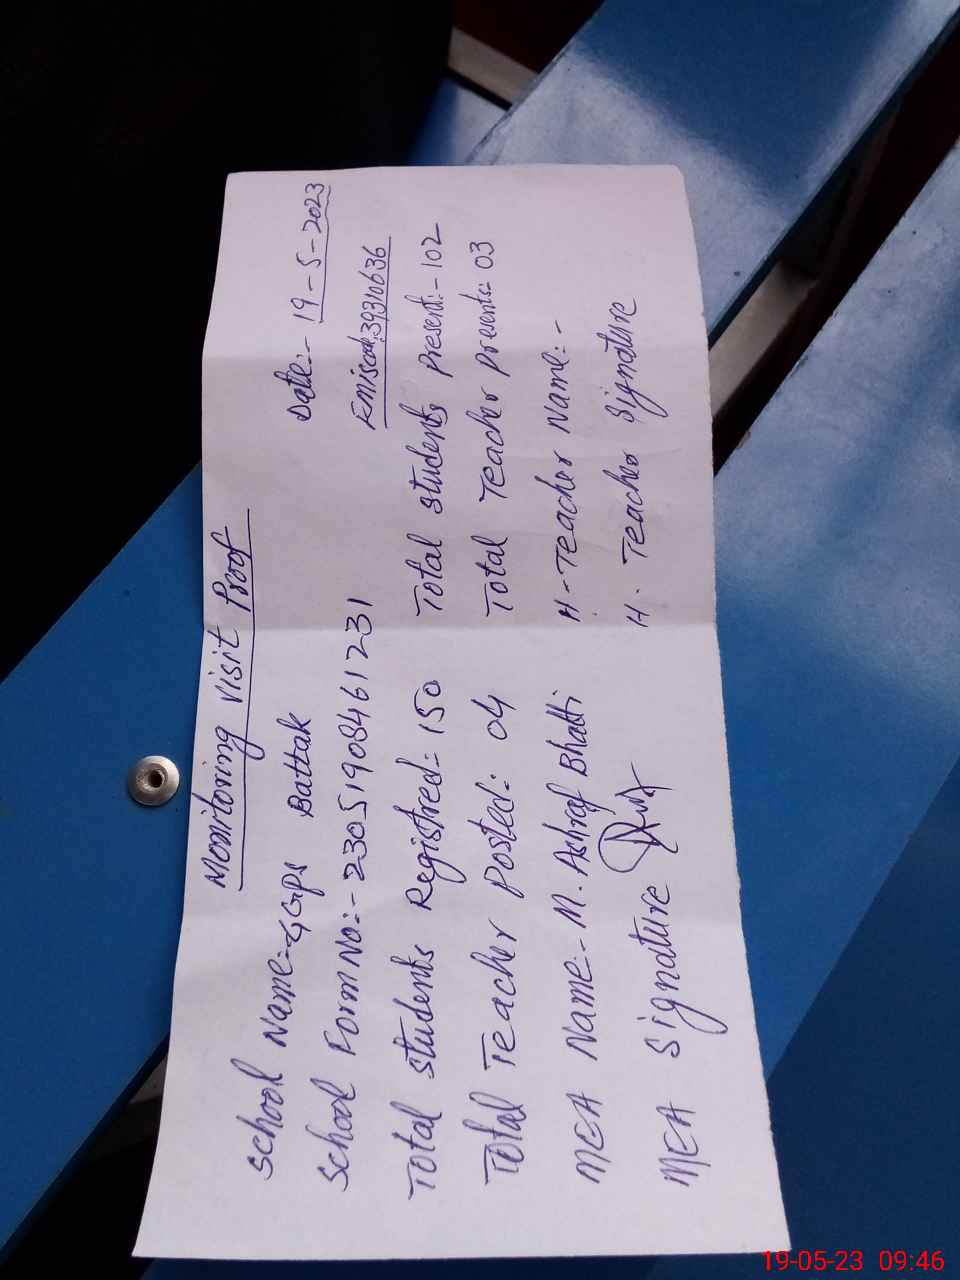 Monitoring Visit Proof
Date:- 19-5-2023
School Name:- GGPS Battak
Emiscode:39310636
School Form No:- 23051908461231
Total Students Registred:- 150 Total Students Present:- 102
Total Teacher Posted:- 04 Total Teacher Presents:- 03
MEA Name:- M. Ashraf Bhatti H-Teacher Name:-
MEA Signature H. Teacher Signature
19-05-23 09:46